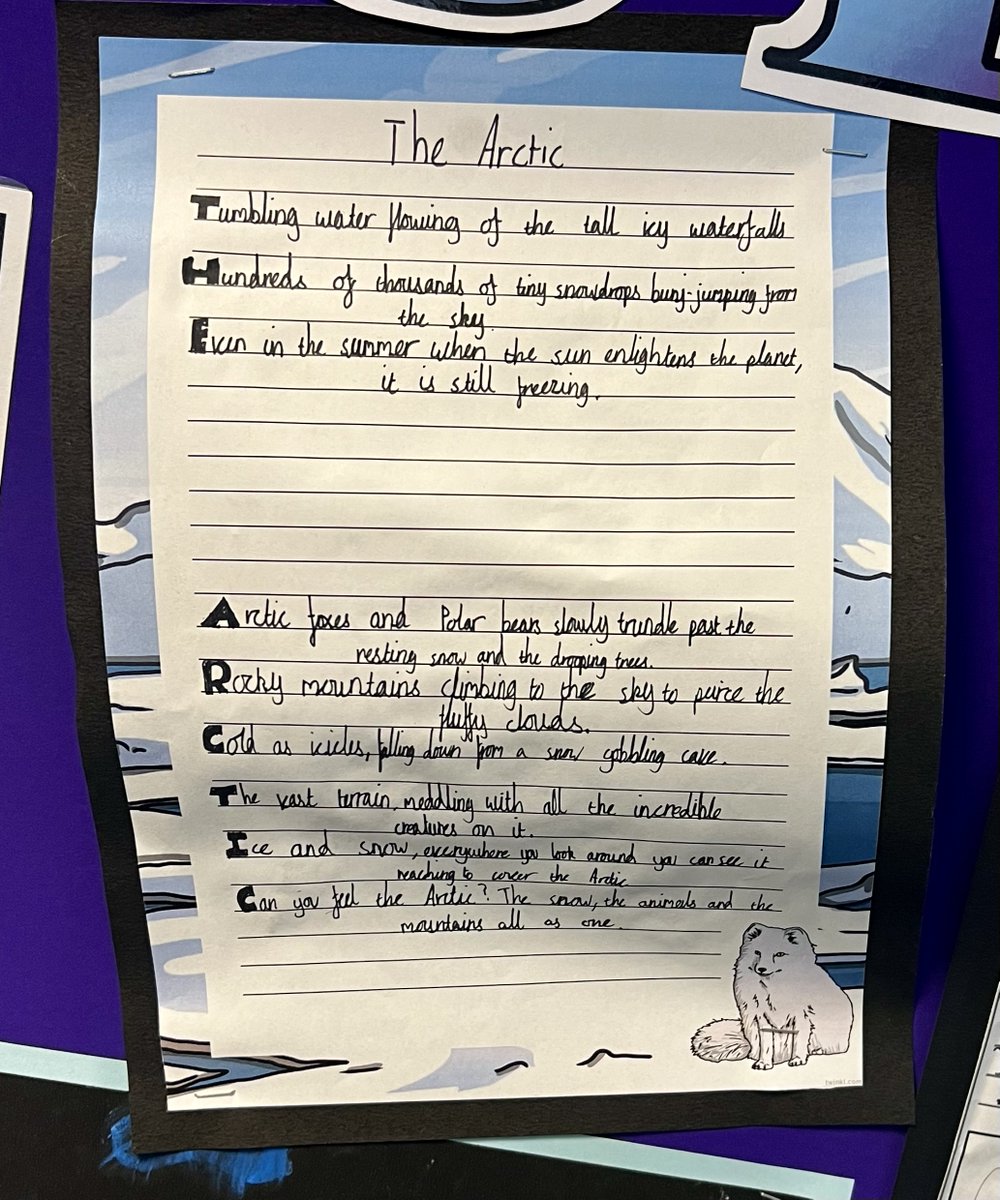 The Arctic
Tumbling water flowing of the tall icy waterfalls
Hundreds of thousands of tiny snowdrops bunj-jumping from
the sky.
Even in the summer when the sun enlightens the planet,
it is still freezing.
Arctic foxes and Polar bears slowly trundle past the
resting snow and the dropping trees.
Rocky mountains climbing to the sky to peirce the
fluffy clouds.
Cold as icicles, falling down from a snow gobbling cave.
The vast terrain, meddling with all the incredible
creatures on it.
Ice and snow, everywhere you look around you can see it
reaching to cover the Arctic
Can you feel the Arctic? The snow, the animals and the
mountains all as one.
twinkl.com